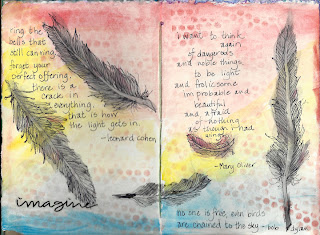 ring the
bells that
still can ring
forget your
perfect offering.
there is a
crack in
everything.
that is how
the light gets in.
-leonard cohen
imagine
i want to think
again
of dangerous
and noble things.
to be light
and frolicsome
improbable and
beautiful
and afraid
of nothing
as though i had
wings
-Mary Oliver
no one is free, even birds
are chained to the sky - bob dylan